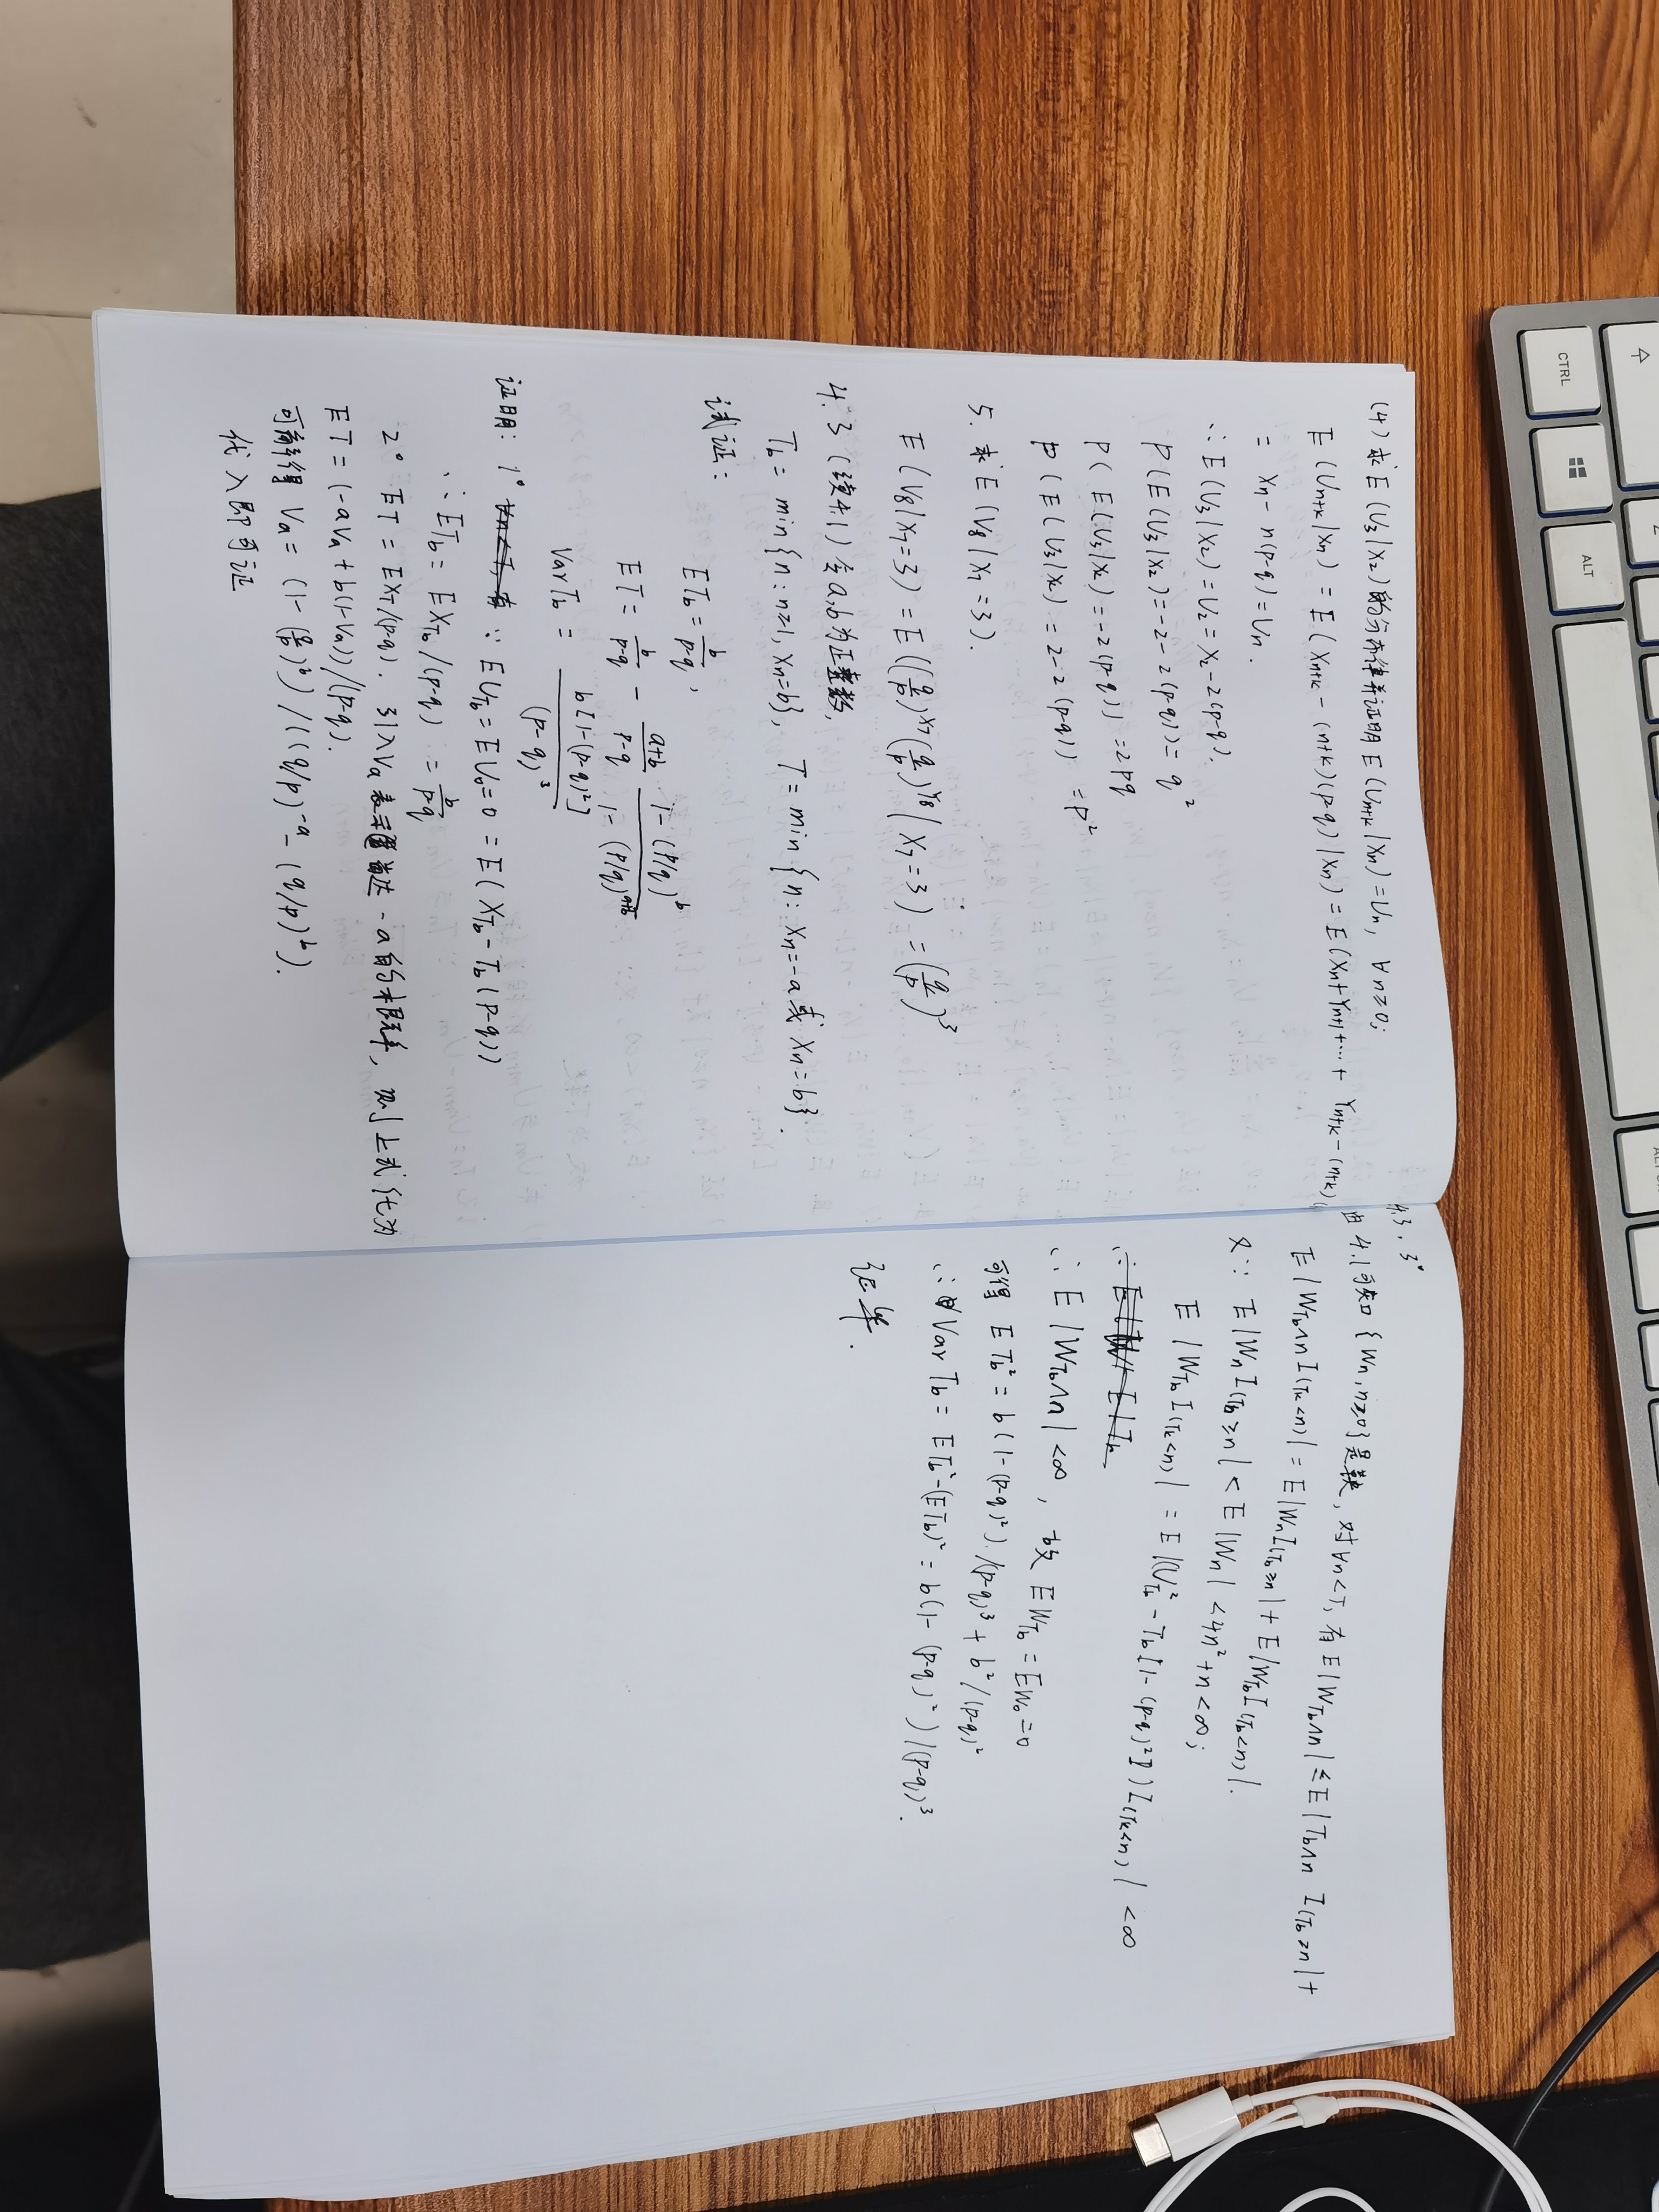 (4) 求 E(U₃|X₂)的分布律并证明 E(Uₙ₊ₖ|Xₙ)=Uₙ, ∀n≥0;
E(Uₙ₊ₖ|Xₙ) = E(Xₙ₊ₖ-(n+k)(p-q)|Xₙ) = E(Xₙ+Yₙ₊₁+…+Yₙ₊ₖ-(n+k)(
= Xₙ - n(p-q) = Uₙ.
∴ E(U₃|X₂) = U₂ = X₂-2(p-q).
P(E(U₃|X₂)=-2-2(p-q)) = q²
P(E(U₃|X₂)=-2(p-q)) = 2pq
P(E(U₃|X₂)=2-2(p-q)) = p²
5. 求 E(V₈|X₇=3).
E(V₈|X₇=3) = E((q/p)^X₇ (q/p)^Y₈ | X₇=3) = (q/p)³
4.3 (续4.1) 令a,b为正整数,
T_b = min{n: n≥1, Xₙ=b}, T = min{n: Xₙ=-a 或 Xₙ=b}.
试证:
ET_b = b/(p-q),
ET = b/(p-q) - (a+b)/(p-q) · (1-(p/q)^b)/(1-(p/q)^(a+b))
VarT_b = b[1-(p-q)²]/(p-q)³
证明: 1° ∵ EU_T_b = EU₀ = 0 = E(X_T_b - T_b(p-q))
∴ ET_b = EX_T_b/(p-q) = b/(p-q)
2° ET = EX_T/(p-q). 引入Va表示到达-a的概率, 则上式化为
ET = (-aVa + b(1-Va))/(p-q).
可解得 Va = (1-(q/p)^b)/((q/p)^-a - (q/p)^b).
代入即可证
4.3, 3°
由4.1可知{Wₙ, n≥0}是鞅, 对∀n<T, 有E|W_T_b∧n| ≤ E|T_b∧n I(T_b≥n)| +
E|W_T_b∧n I(T_k<n)| = E|Wₙ I(T_b≥n| + E|W_T_b I(T_b<n)|.
又∵ E|Wₙ I(T_b≥n| < E|Wₙ| < 4n²+n < ∞;
E|W_T_b I(T_k<n)| = E|(U²_T_b - T_b[1-(p-q)²]) I(T_k<n)| < ∞
∴ E|W_T_b∧n| < ∞, 故 EW_T_b = EW₀ = 0
可得 ET_b² = b(1-(p-q)²)/(p-q)³ + b²/(p-q)²
∴ Var T_b = ET_b² - (ET_b)² = b(1-(p-q)²)/(p-q)³.
证毕.
CTRL
ALT